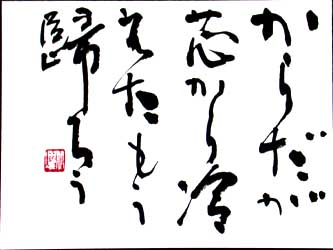 からだが
芯から冷
えたもう
歸ろう